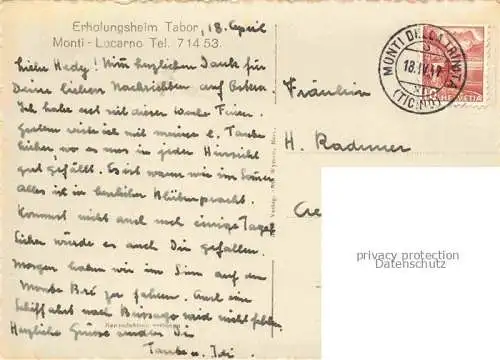 Erholungsheim Tabor, 18. April
Monti - Locarno Tel. 7 14 53.
Liebe Hedy! Nimm herzlichen Dank für
Deine lieben Nachrichten auf Ostern.
Ich habe erst mit dieser Woche Ferien.
Gestern reiste ich mit meiner l. Tante
hieher, wo es uns in jeder Hinsicht
gut gefällt. Es ist warm wie im Sommer
alles ist in herrlicher Blütenpracht.
Kommst nicht auch noch einige Tage?
Sicher würde es auch Dir gefallen.
Morgen haben wir im Sinn auf den
Monte Brè zu fahren. Auch eine
Schiffahrt nach Brissago wird nicht fehlen.
Herzliche Grüsse senden Dir
Tante u. Idi
MONTI DELLA TRINITÀ
18.IV.47
(TICINO)
HELVETIA
Fräulein
H. Radimer
privacy protection
Datenschutz